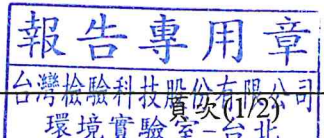 報告專用章
台灣檢驗科技股份有限公司
頁次(1/2)
環境實驗室-台北